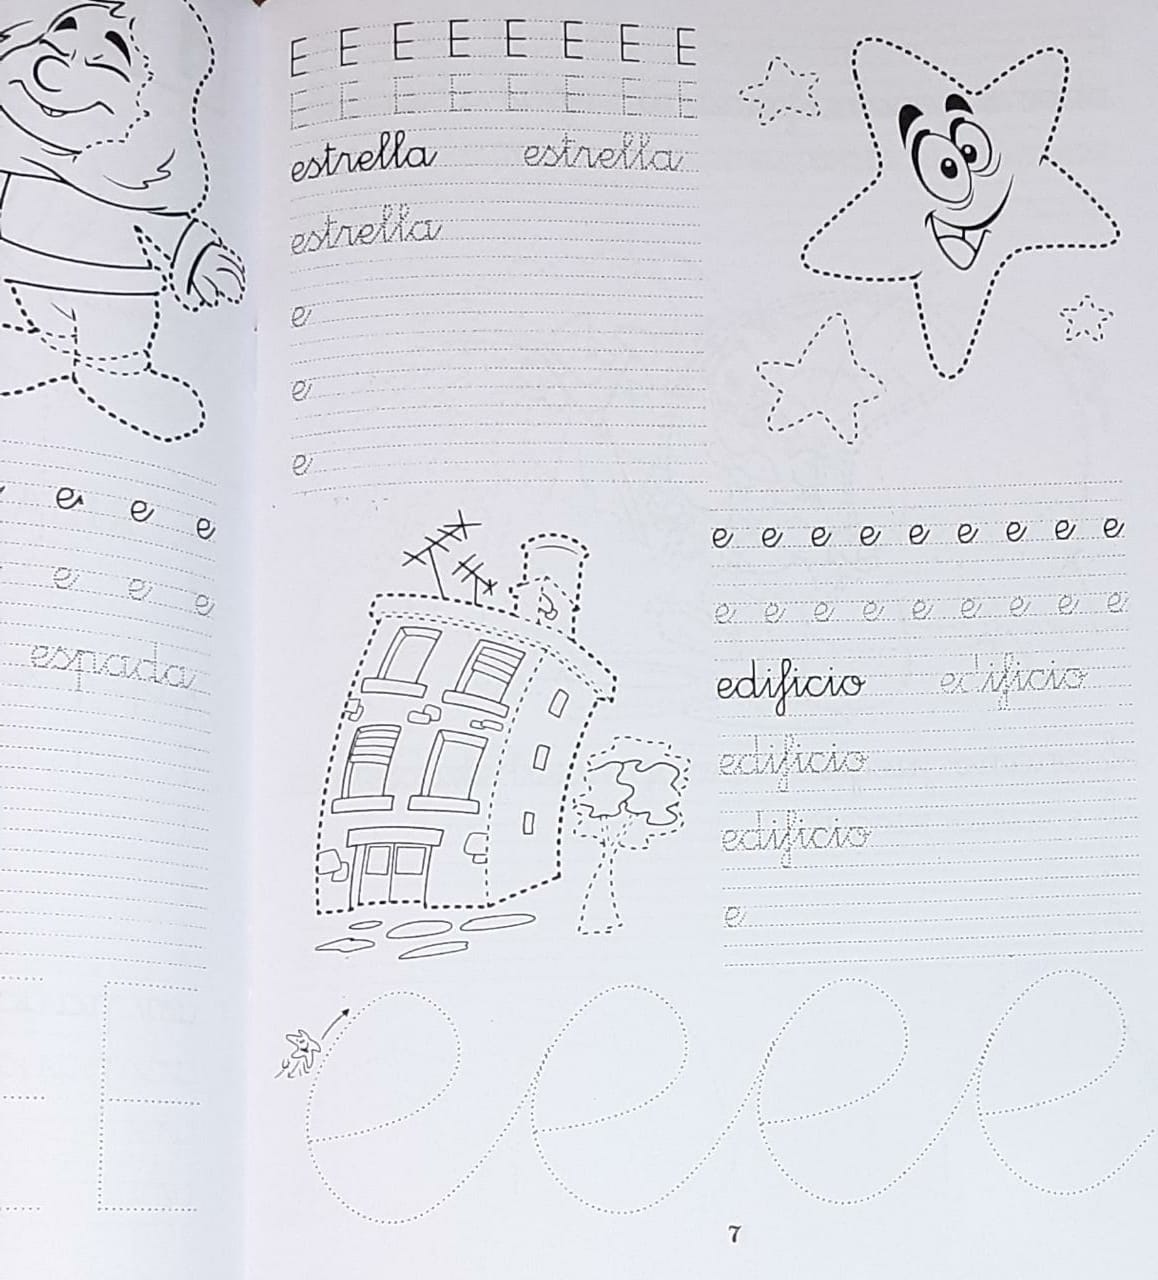 e e e
e e e
espada
E
E E E E E E E E
E E E E E E E E
estrella estrella
estrella
e
e
e
e e e e e e e e e
e e e e e e e e e
edificio edificio
edificio
edificio
e
e e e e
7